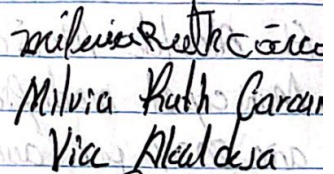 Milvia Ruth
Milvia Ruth
Vice Alcaldesa